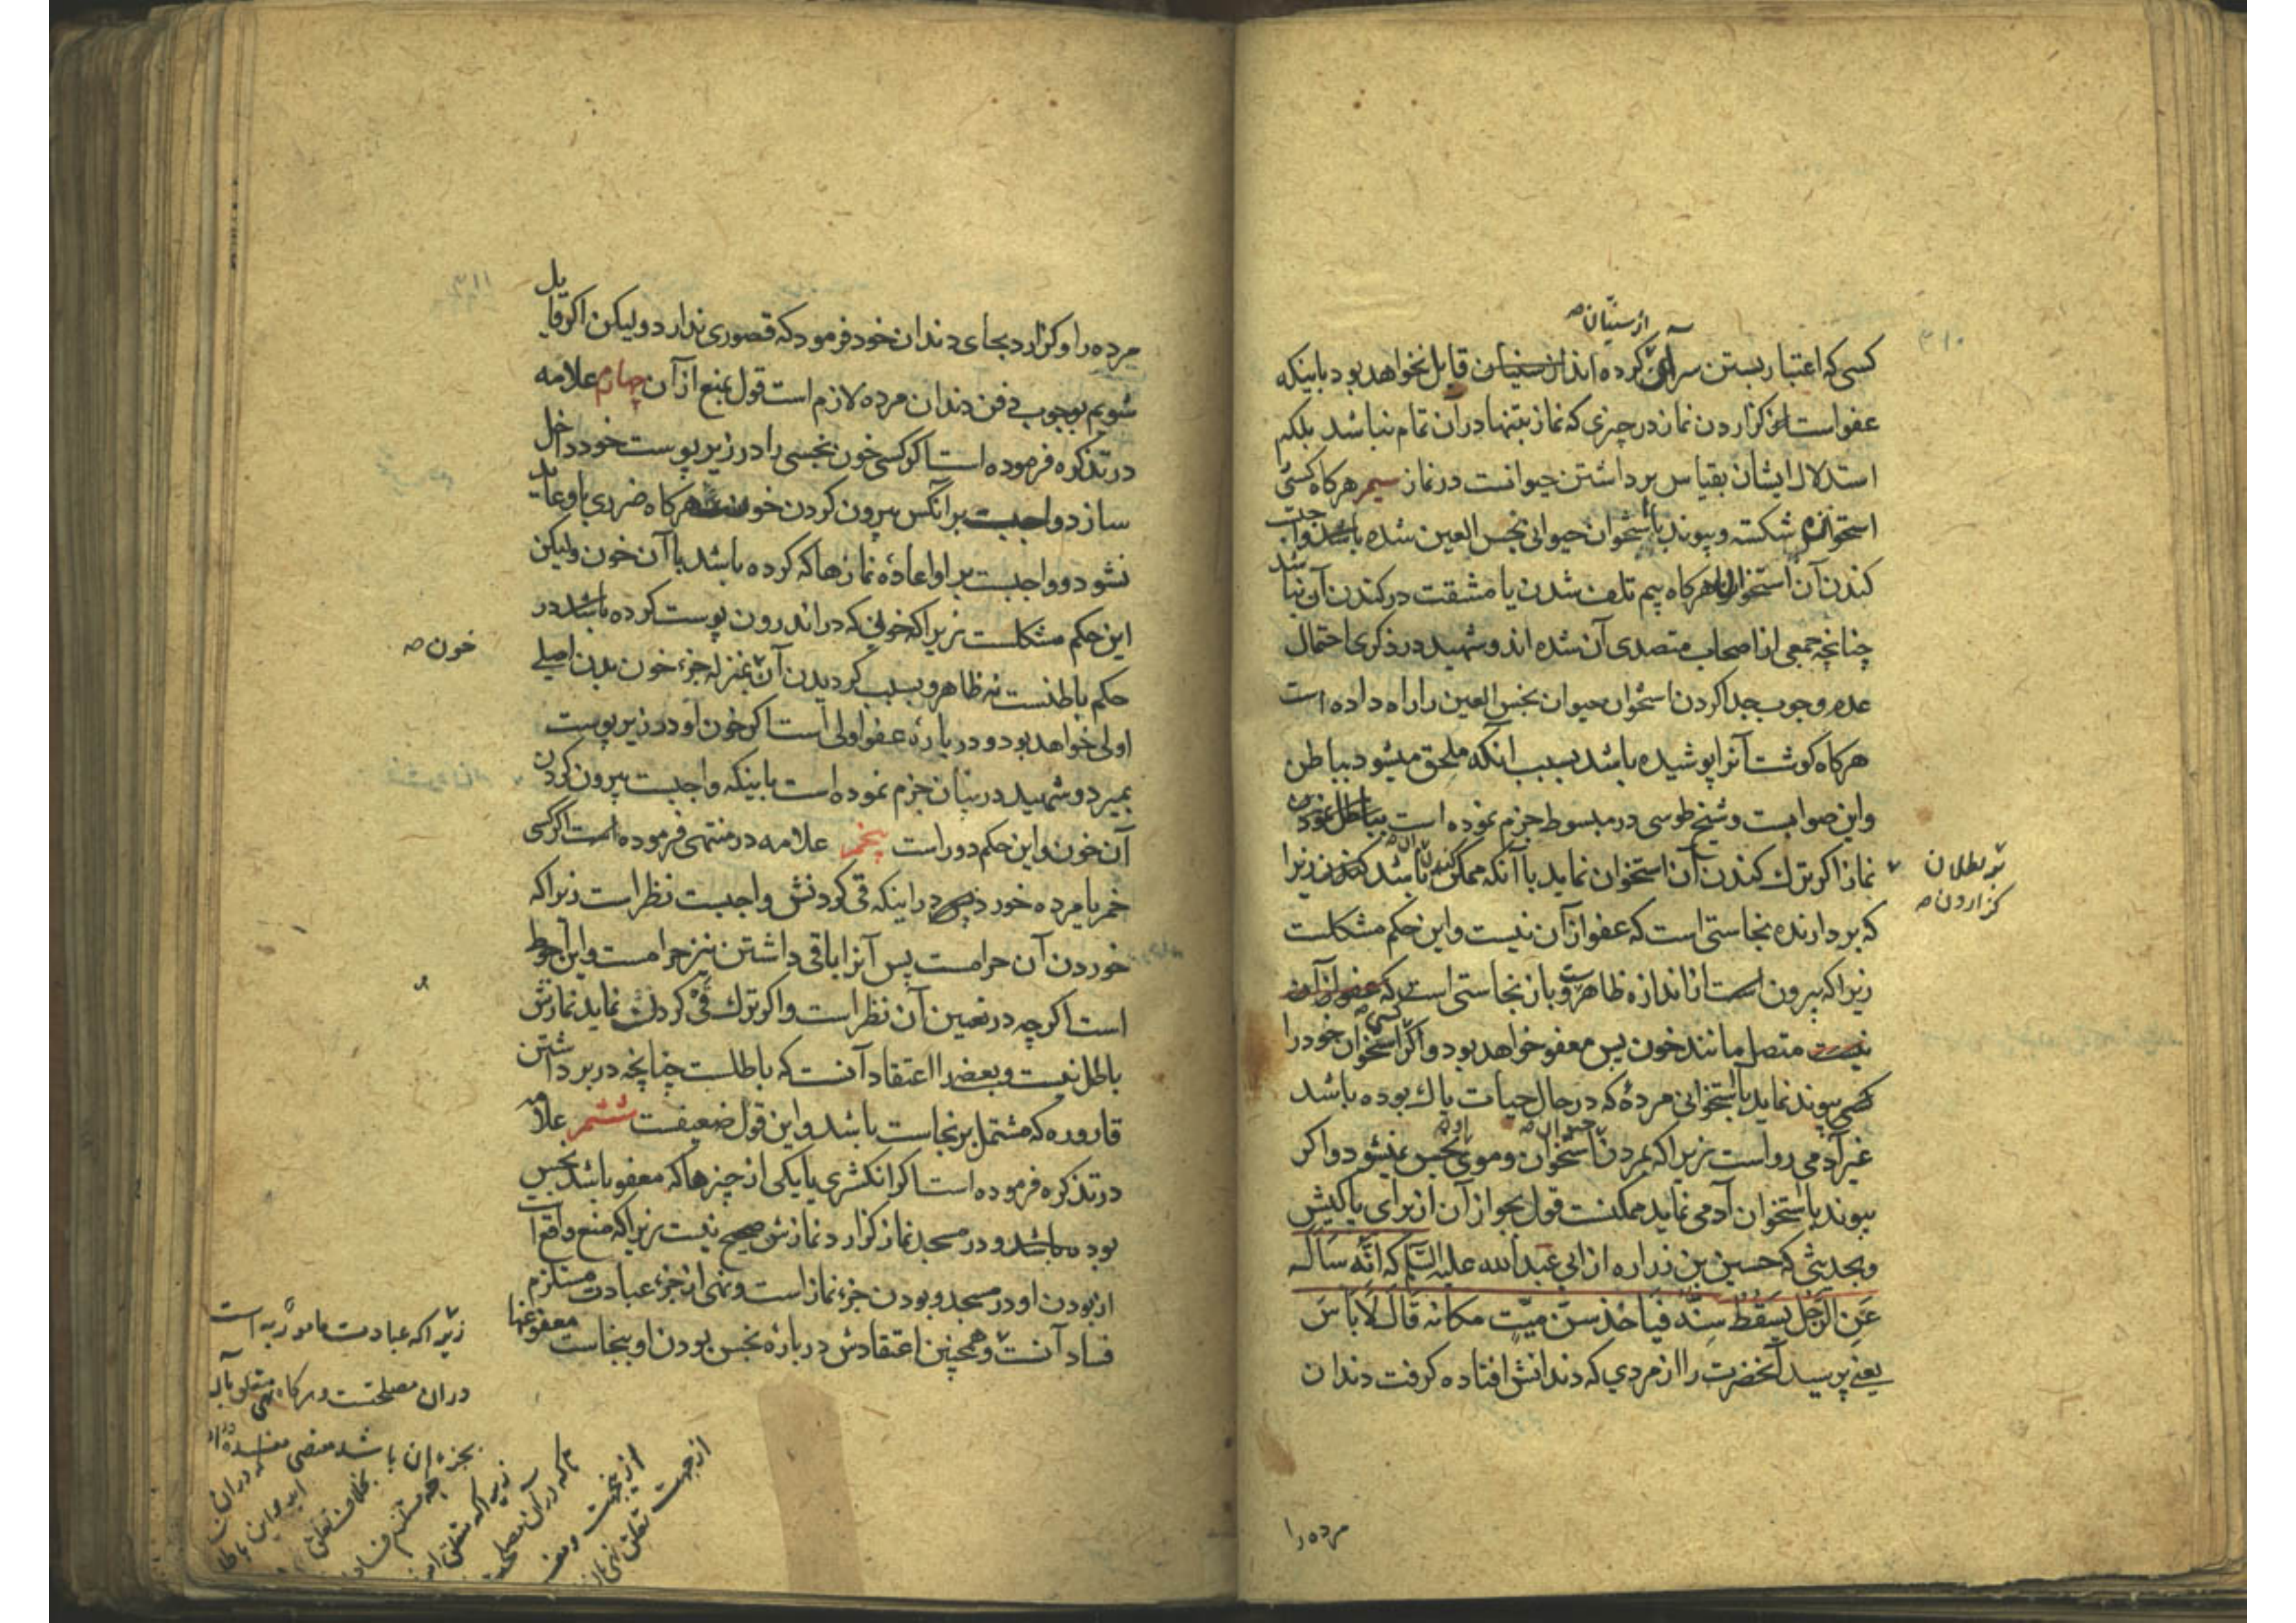 ۳۱۰
از سنیان صه
کسی که اعتبار بستن سر آن کرده اند از سنیان قایل نخواهد بود باینکه
عفو است از کزاردن نماز در چیزی که نماز بتنها در آن تمام نباشد بلکه
استدلال ایشان بقیاس برداشتن حیوانست در نماز سیم هرکاه کسی
استخوانش شکسته و پیوند باستخوان حیوانی نجس العین شده باشد واجبست
کندن آن استخوان هرکاه بیم تلف شدن یا مشقت در کندن آن نباشد
چنانچه جمعی از اصحاب متصدی آن شده اند و شهید در ذکری احتمال
عدم وجوب جدا کردن استخوان حیوان نجس العین را راه داده است
هرکاه کوشت آنرا پوشیده باشد بسبب آنکه ملحق میشود بباطن
و این صوابست و شیخ طوسی در مبسوط جزم نموده است بباطل بودن
نماز اکر ترک کندن آن استخوان نماید با آنکه ممکن باشد کندن زیرا
تو بطلان
کزاردن صه
که بردارنده نجاستی است که عفو از آن نیست و این حکم مشکلست
زیرا که بیرون است از اندازه ظاهر و بان نجاستی است که عفو از آن
نیست متصل مانند خون پس معفو خواهد بود و اکر کسی استخوان خود را
پیوند نماید باستخوانی مردهٔ که در حال حیات پاک بوده باشد
غیر آدمی رواست زیرا که بمردن استخوان و موی نجس نمیشود و اکر
پیوند باستخوان آدمی نماید ممکنست قول بجواز آن از برای پاکیش
و بحدیثی که حسین بن زراره از ابی عبد الله علیه السلم که انه ساله
عن الرجل یسقط سنه فیاخذ سن میت مکانه قال لا باس
یعنی پرسید آنحضرت را از مردی که دندانش افتاده کرفت دندان
مرده را
۳۱۱
مرده را و کزارد بجای دندان خود فرمود که قصوری ندارد ولیکن اکر قایل
شویم بوجوب دفن دندان مرده لازم است قول بمنع از آن چهارم علامه
در تذکره فرموده است اکر کسی خون نجسی را در زیر پوست خود داخل
سازد واجبست بر آنکس بیرون کردن خون هرکاه ضرری باو عاید
نشود و واجبست بر او اعادهٔ نمازها که کرده باشد با آن خون ولیکن
این حکم مشکلست زیرا که خونی که در اندرون پوست کرده باشد در
خون صه
حکم باطنست نه ظاهر و بسبب کردیدن آن بمنزله جزء خون بدن اصلی
اولی خواهد بود و در بارهٔ عفو اولی است اکر خون او در زیر پوست
بمیرد و شهید در بیان جزم نموده است باینکه واجبست بیرون کردن
آن خون و این حکم دور است پنجم علامه در منتهی فرموده است اکر کسی
خمر یا مرده خورد در اینکه قی کردنش واجبست نظر است زیرا که
خوردن آن حرامست پس آنرا باقی داشتن نیز حرامست و این احوط
است اکرچه در تعیین آن نظر است و اکر ترک قی کردن نماید نمازش
باطل نیست و بعضی را اعتقاد آنست که باطلست چنانچه در برداشتن
قاروره که مشتمل بر نجاست باشد و این قول ضعیفست ششم علامه
در تذکره فرموده است اکر انکشتری یا یکی از چیزها که معفو باشد نجس
بوده باشد و در مسجد نماز کزارد نمازش صحیح نیست زیرا که منع واقع است
از بودن او در مسجد و بودن جزء نماز است و نهی از جزء عبادت مستلزم
فساد آنست و همچنین اعتقادش در بارهٔ نجس بودن او بنجاست معفو عنها
زیرا که عبادت مامور به است
در ان مصلحتست و هرکاه نهی متعلق
بجزء ان باشد مقتضی مفسده